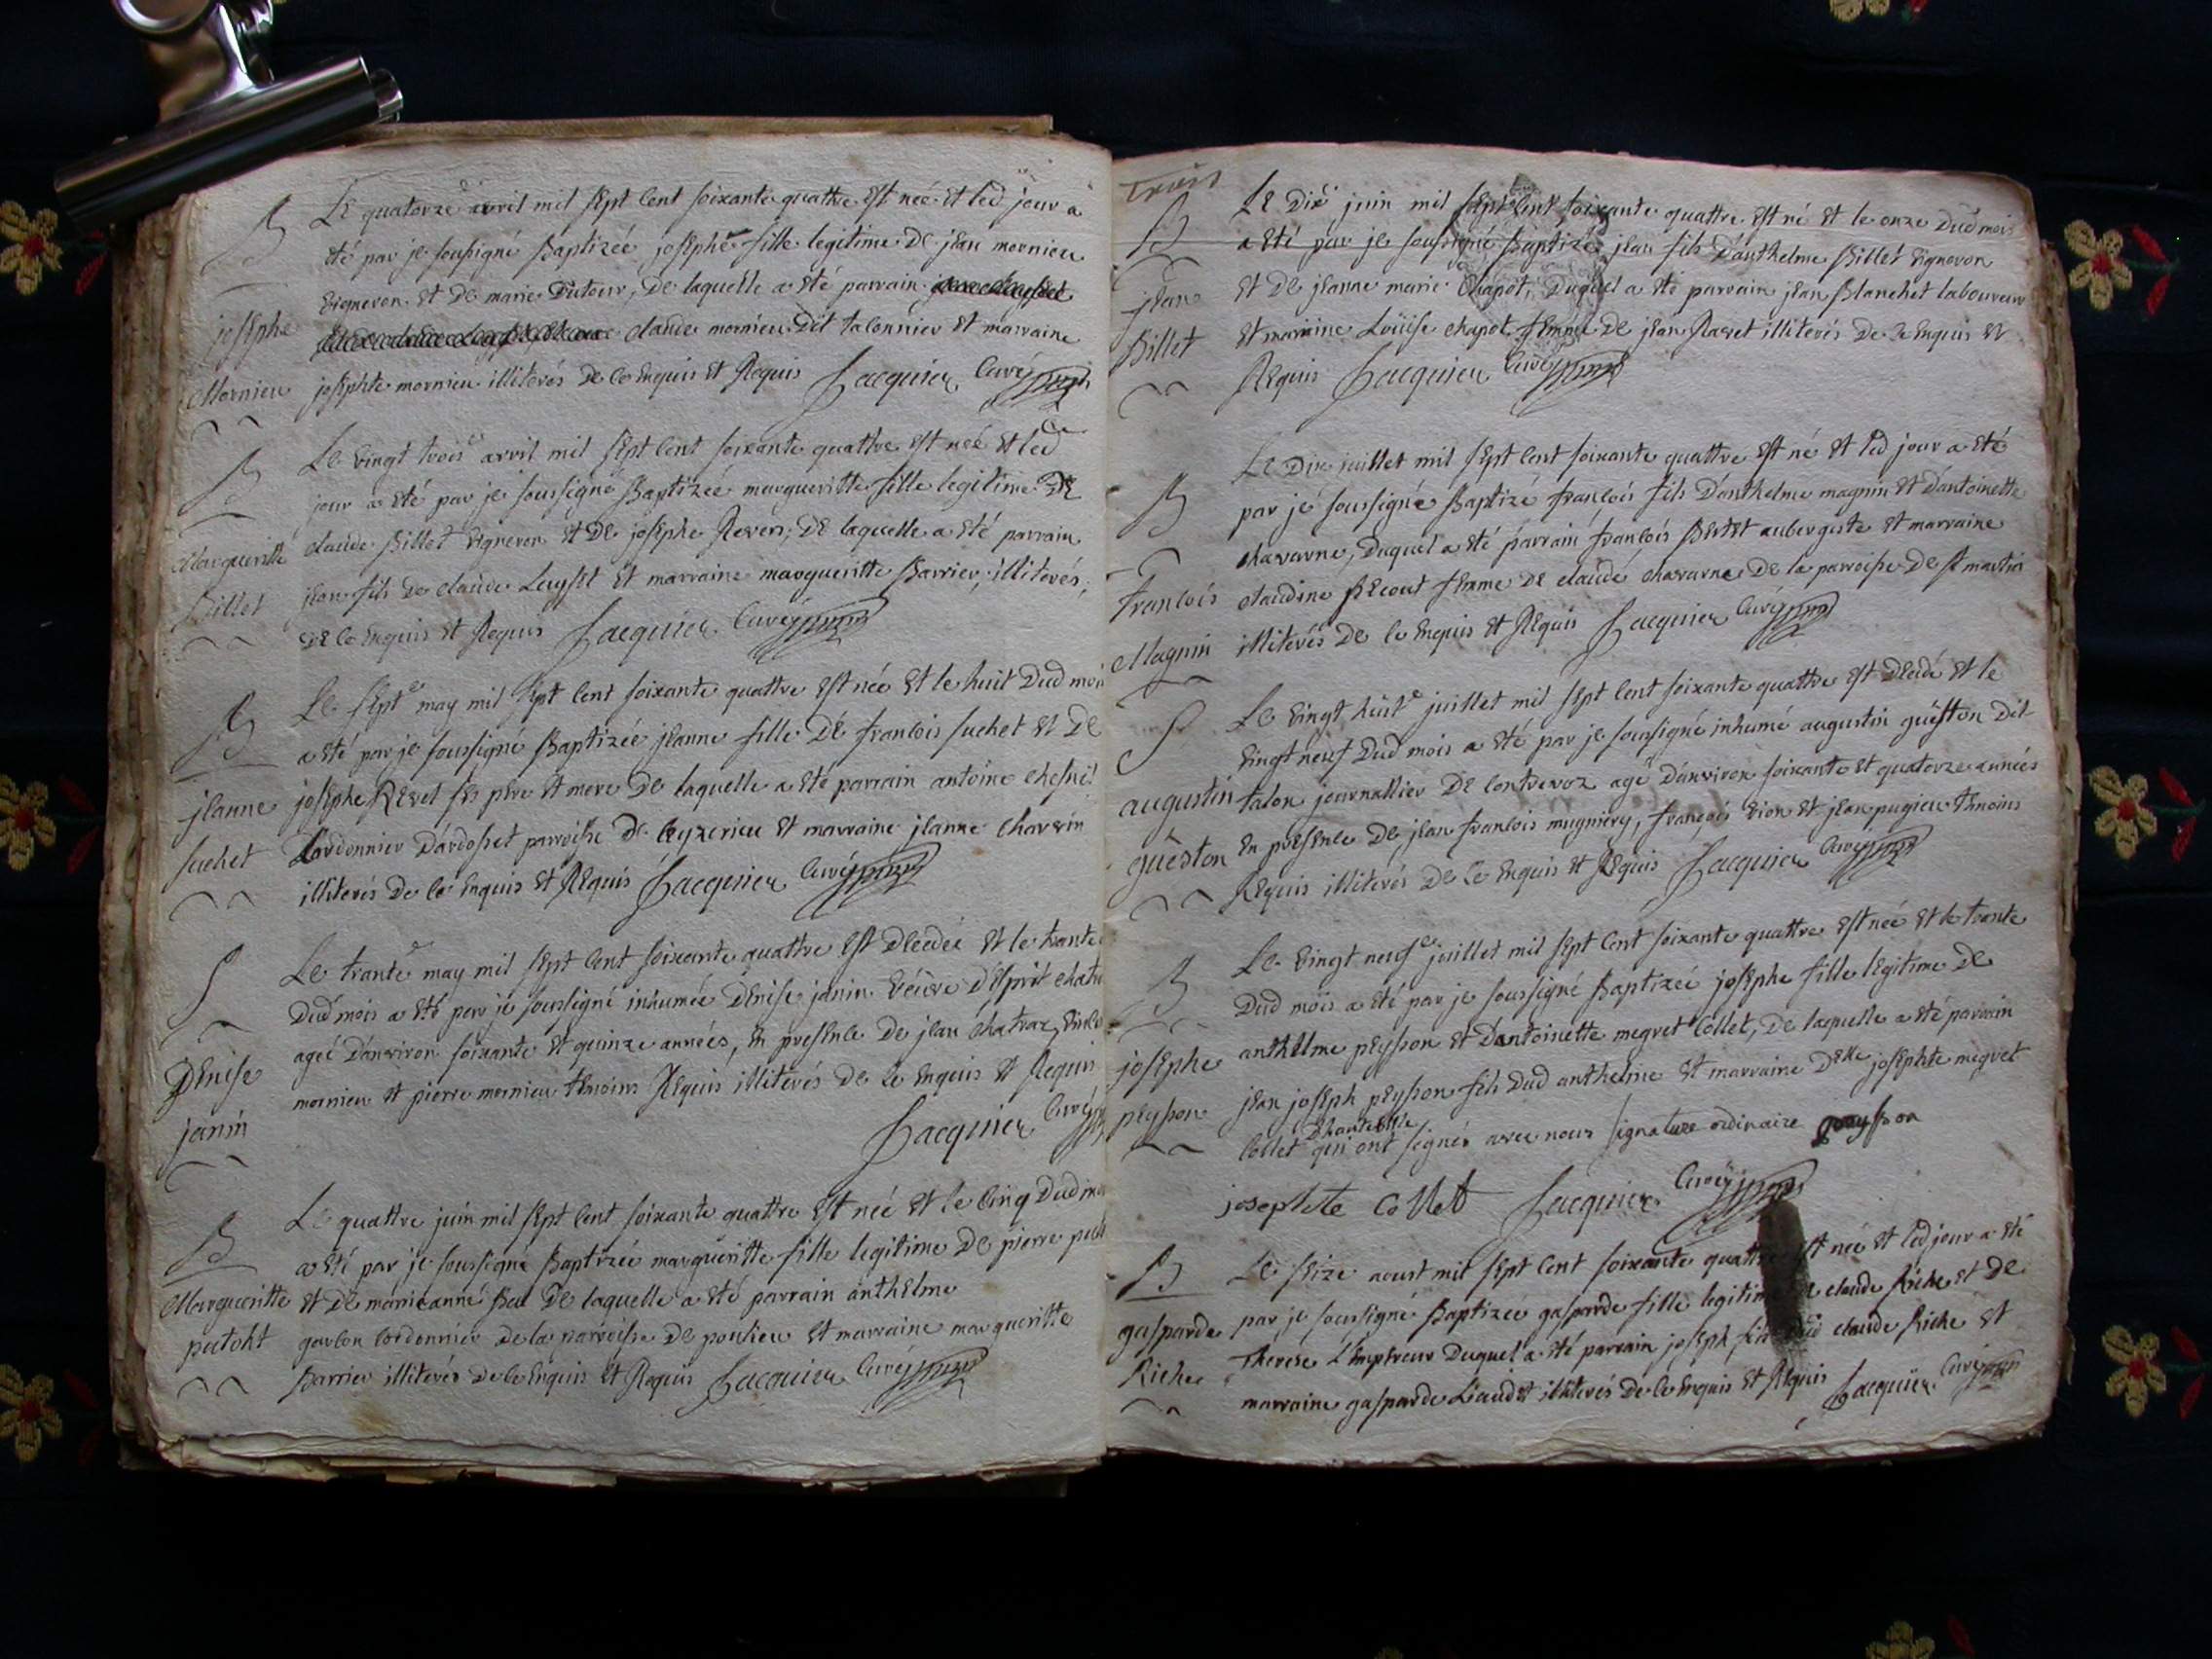 B
josephe
Mornieu
Le quatorze avril mil sept cent soixante quattre est née et led jour a
été par je sousigné Baptizée josephe fille legitime de jean mornieu
vigneron et de marie Dutour, de laquelle a été parrain
claude mornieu dit talonnier et marraine
josephte mornieu illiterés de ce enquis et Requis Jacquier Curé
B
Margueritte
Billet
Le vingt trois avril mil sept cent soixante quattre est née et led
jour a été par je soussigné Baptizée margueritte fille legitime de
claude Billet vigneron et de josephe Reven, de laquelle a été parrain
jean fils de claude Luyset et marraine margueritte Barrier, illiterés,
de ce enquis et Requis Jacquier Curé
B
jeanne
suchet
Le septe may mil sept cent soixante quattre est née et le huit dud mois
a été par je soussigné Baptizée jeanne fille de francois suchet et de
josephe Revel ses pere et mere de laquelle a été parrain antoine
Cordonnier d'ardosset parroisse de ceyzerieu et marraine jeanne charvin
illiterés de ce enquis et Requis Jacquier Curé
S
Denise
janin
Le trante may mil sept cent soixante quattre est decedée et le trante
dud mois a été par je soussigné inhumée Denise janin veuve d'Esprit
ageé d'anviron soixante et quinze années, en presence de jean chatraz,
mornieu et pierre mornieu temoins Requis illiterés de ce enquis et Requis
Jacquier Curé
B
Margueritte
Le quattre juin mil sept cent soixante quattre est neé et le cinq dud
a été par je soussigné Baptizée margueritte fille legitime de pierre
et de marieanne Bal de laquelle a été parrain anthelme
gavlon cordonnier de la parroisse de poulieu et marraine margueritte
Barrier illiterés de ce enquis et Requis Jacquier Curé
Trois
B
jean
Billet
Le dix juin mil sept cent soixante quattre est né et le onze dud mois
a été par je soussigné Baptizé jean fils d'anthelme Billet vigneron
et de jeanne marie Chapot, Duquel a été parrain jean Blanchet laboureur
et marraine Loüise chapot femme de jean Ravet illiterés de ce enquis et
Requis Jacquier Curé
B
francois
Magnin
Le dix juillet mil sept cent soixante quattre est né et led jour a été
par je soussigné Baptizé francois fils d'anthelme magnin et d'antoinette
chavarne, Duquel a été parrain francois Bertet aubergiste et marraine
claudine Recout femme de claude chavarne de la parroisse de st martin
illiterés de ce enquis et Requis Jacquier Curé
S
augustin
guéston
Le vingt huite juillet mil sept cent soixante quattre est decedé et le
vingt neuf dud mois a été par je soussigné inhumé augustin guéston dit
talon journallier de contrevoz agé d'anviron soixante et quatorze années
en presence de jean francois mugniéry, francois vion et jean pugieu temoins
Requis illiterés de ce enquis et Requis Jacquier Curé
B
josephe
peysson
Le vingt neufe juillet mil sept cent soixante quattre est née et le trante
Dud mois a été par je soussigné Baptizée josephe fille legitime de
anthelme peysson et d'antoinette megret Collet, de laquelle a été parrain
jean joseph peysson fils Dud anthelme et marraine Delle josephte megret
Collet qui ont signés avec nous signature ordinaire peysson
josephte collet Jacquier Curé
B
gasparde
Riche
Le seize aoust mil sept cent soixante quattre est née et led jour a été
par je soussigné Baptizée gasparde fille legitime de claude Riche et de
Therese L'Empereur Duquel a été parrain joseph fils dud claude Riche et
marraine gasparde Liaudet illiterés de ce enquis et Requis Jacquier Curé